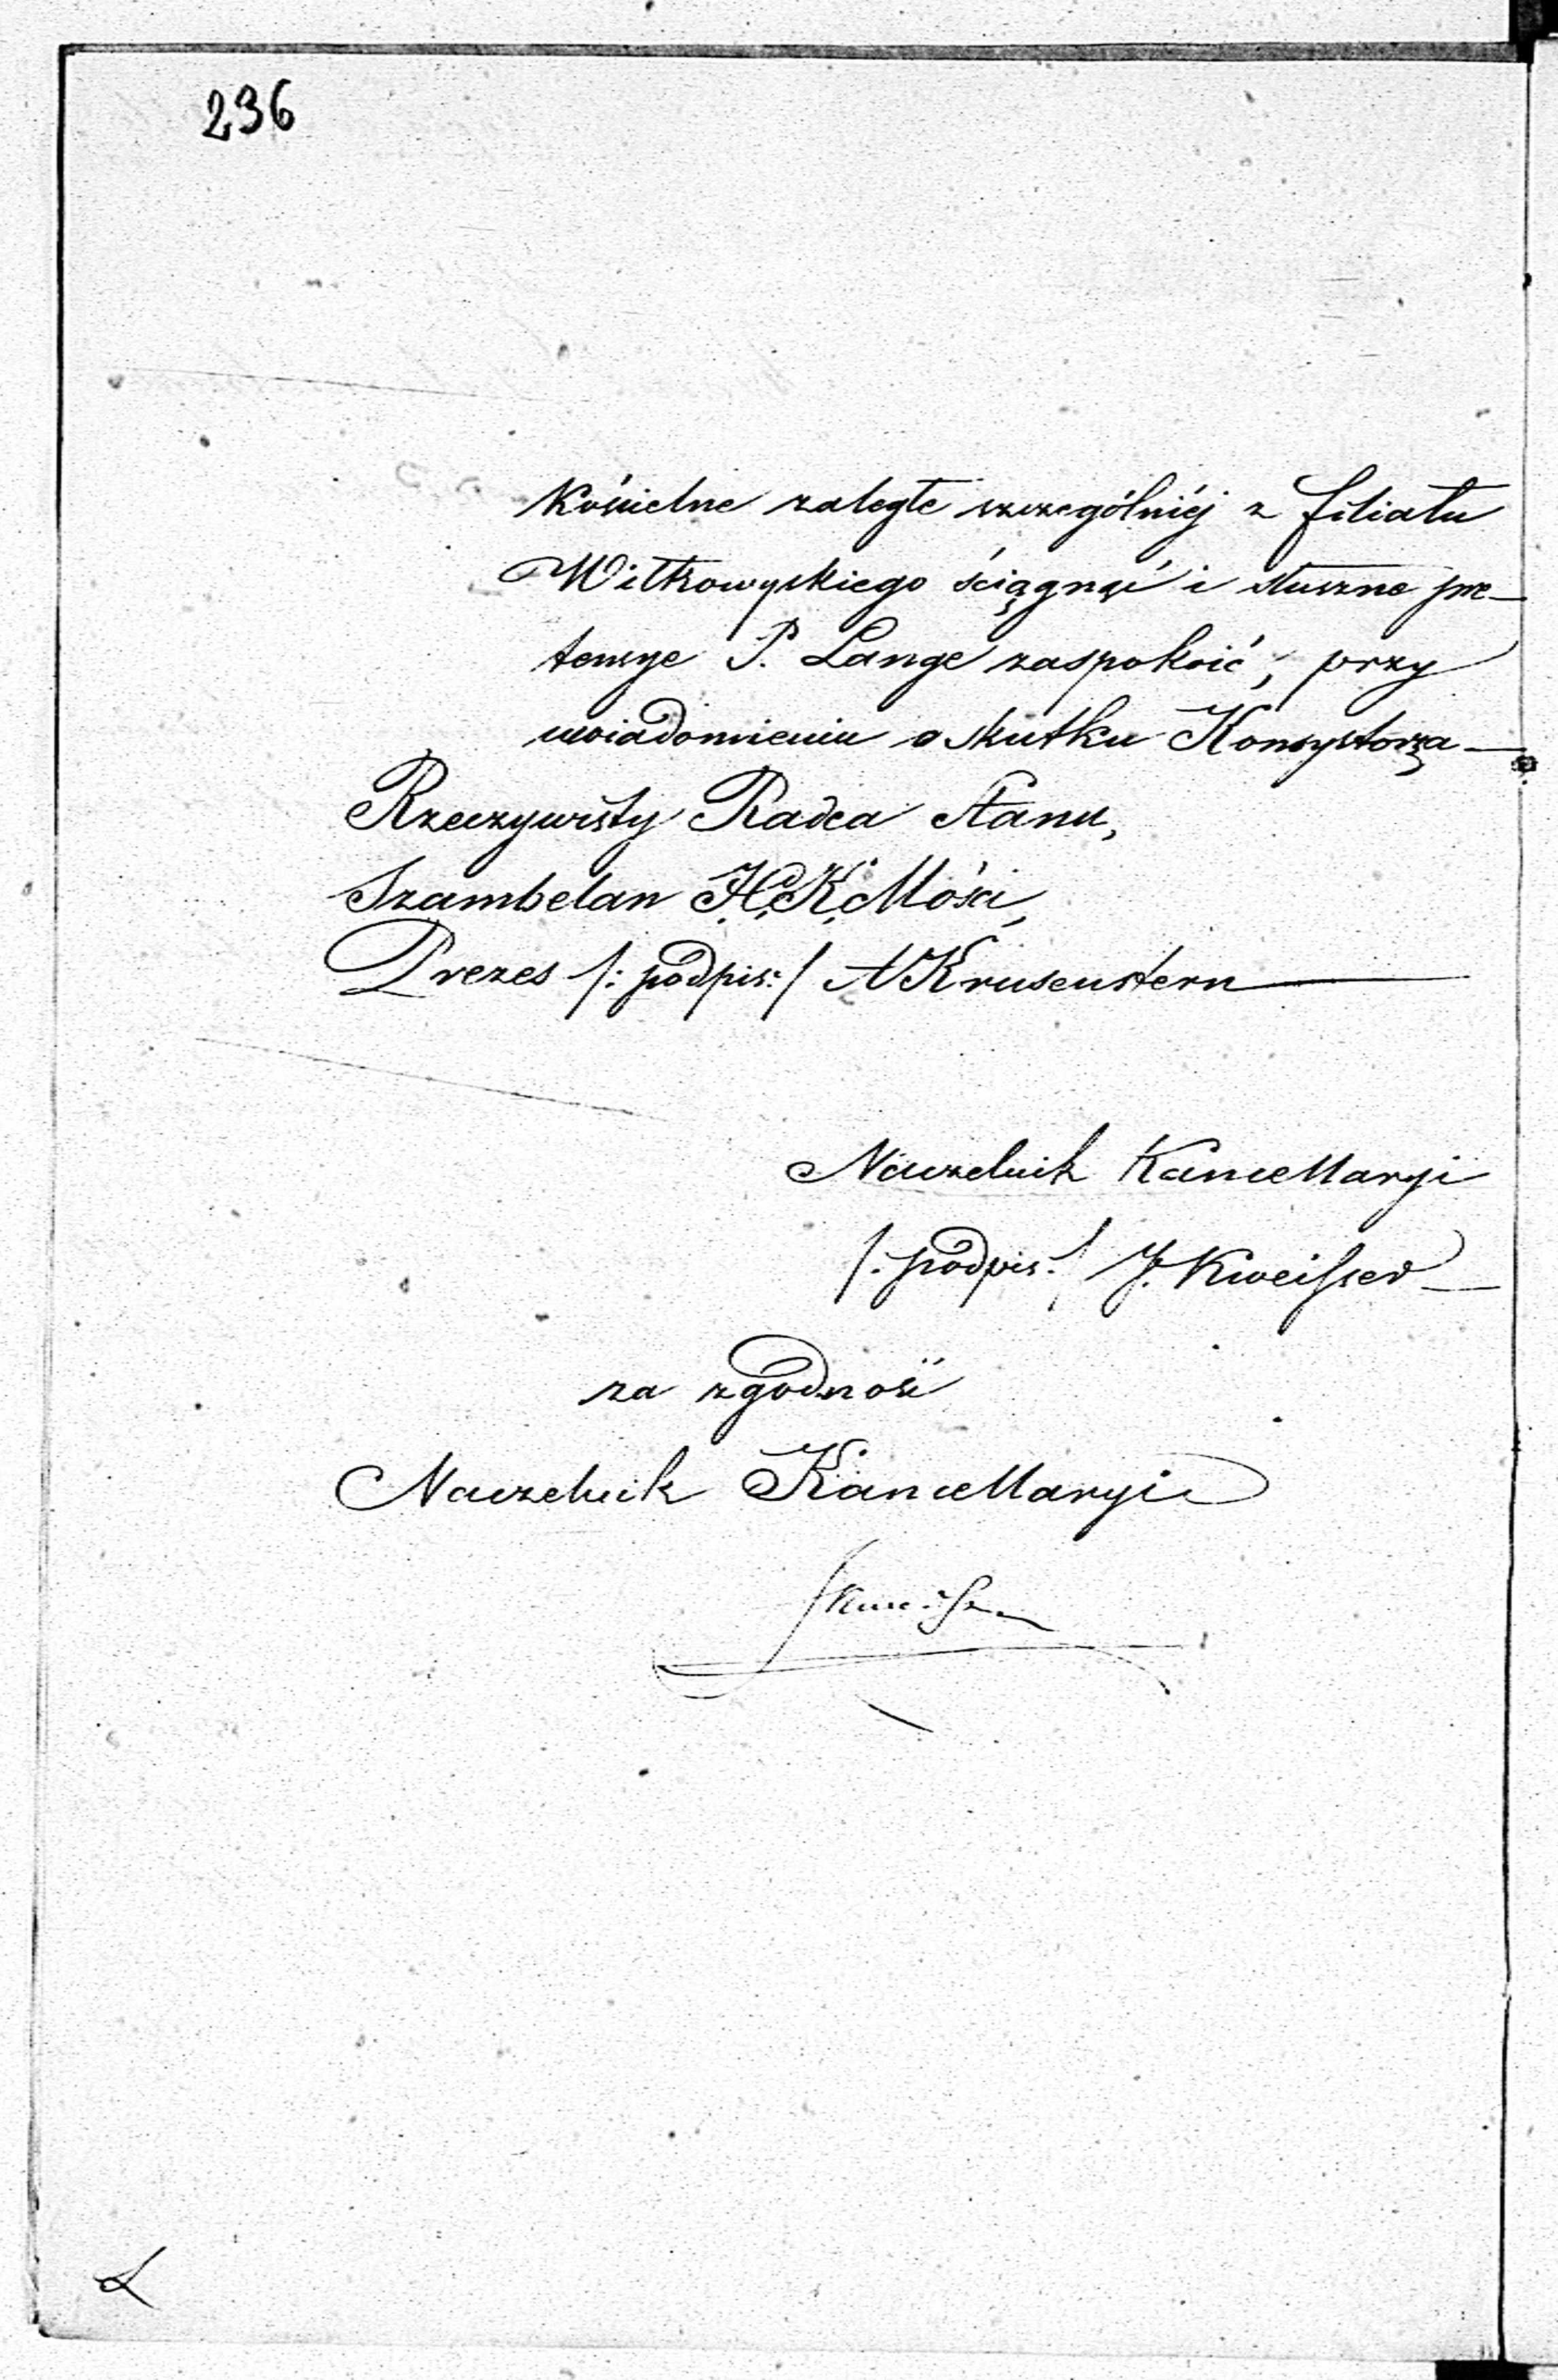 236
Kościelne zaległe szczególniéj z filiału
Wiłkowyskiego ściągnąć i słuszne pre-
tensye P. Lange zaspokoić, przy
uwiadomieniu o skutku Konsystorza —
Rzeczywisty Radca Stanu,
Szambelan J.C.K. Mości,
Prezes /: podpis: / A Krusenstern —
Naczelnik Kancellaryi
/: podpis: / J. Kweisser —
za zgodność
Naczelnik Kancellaryi
JKweisser